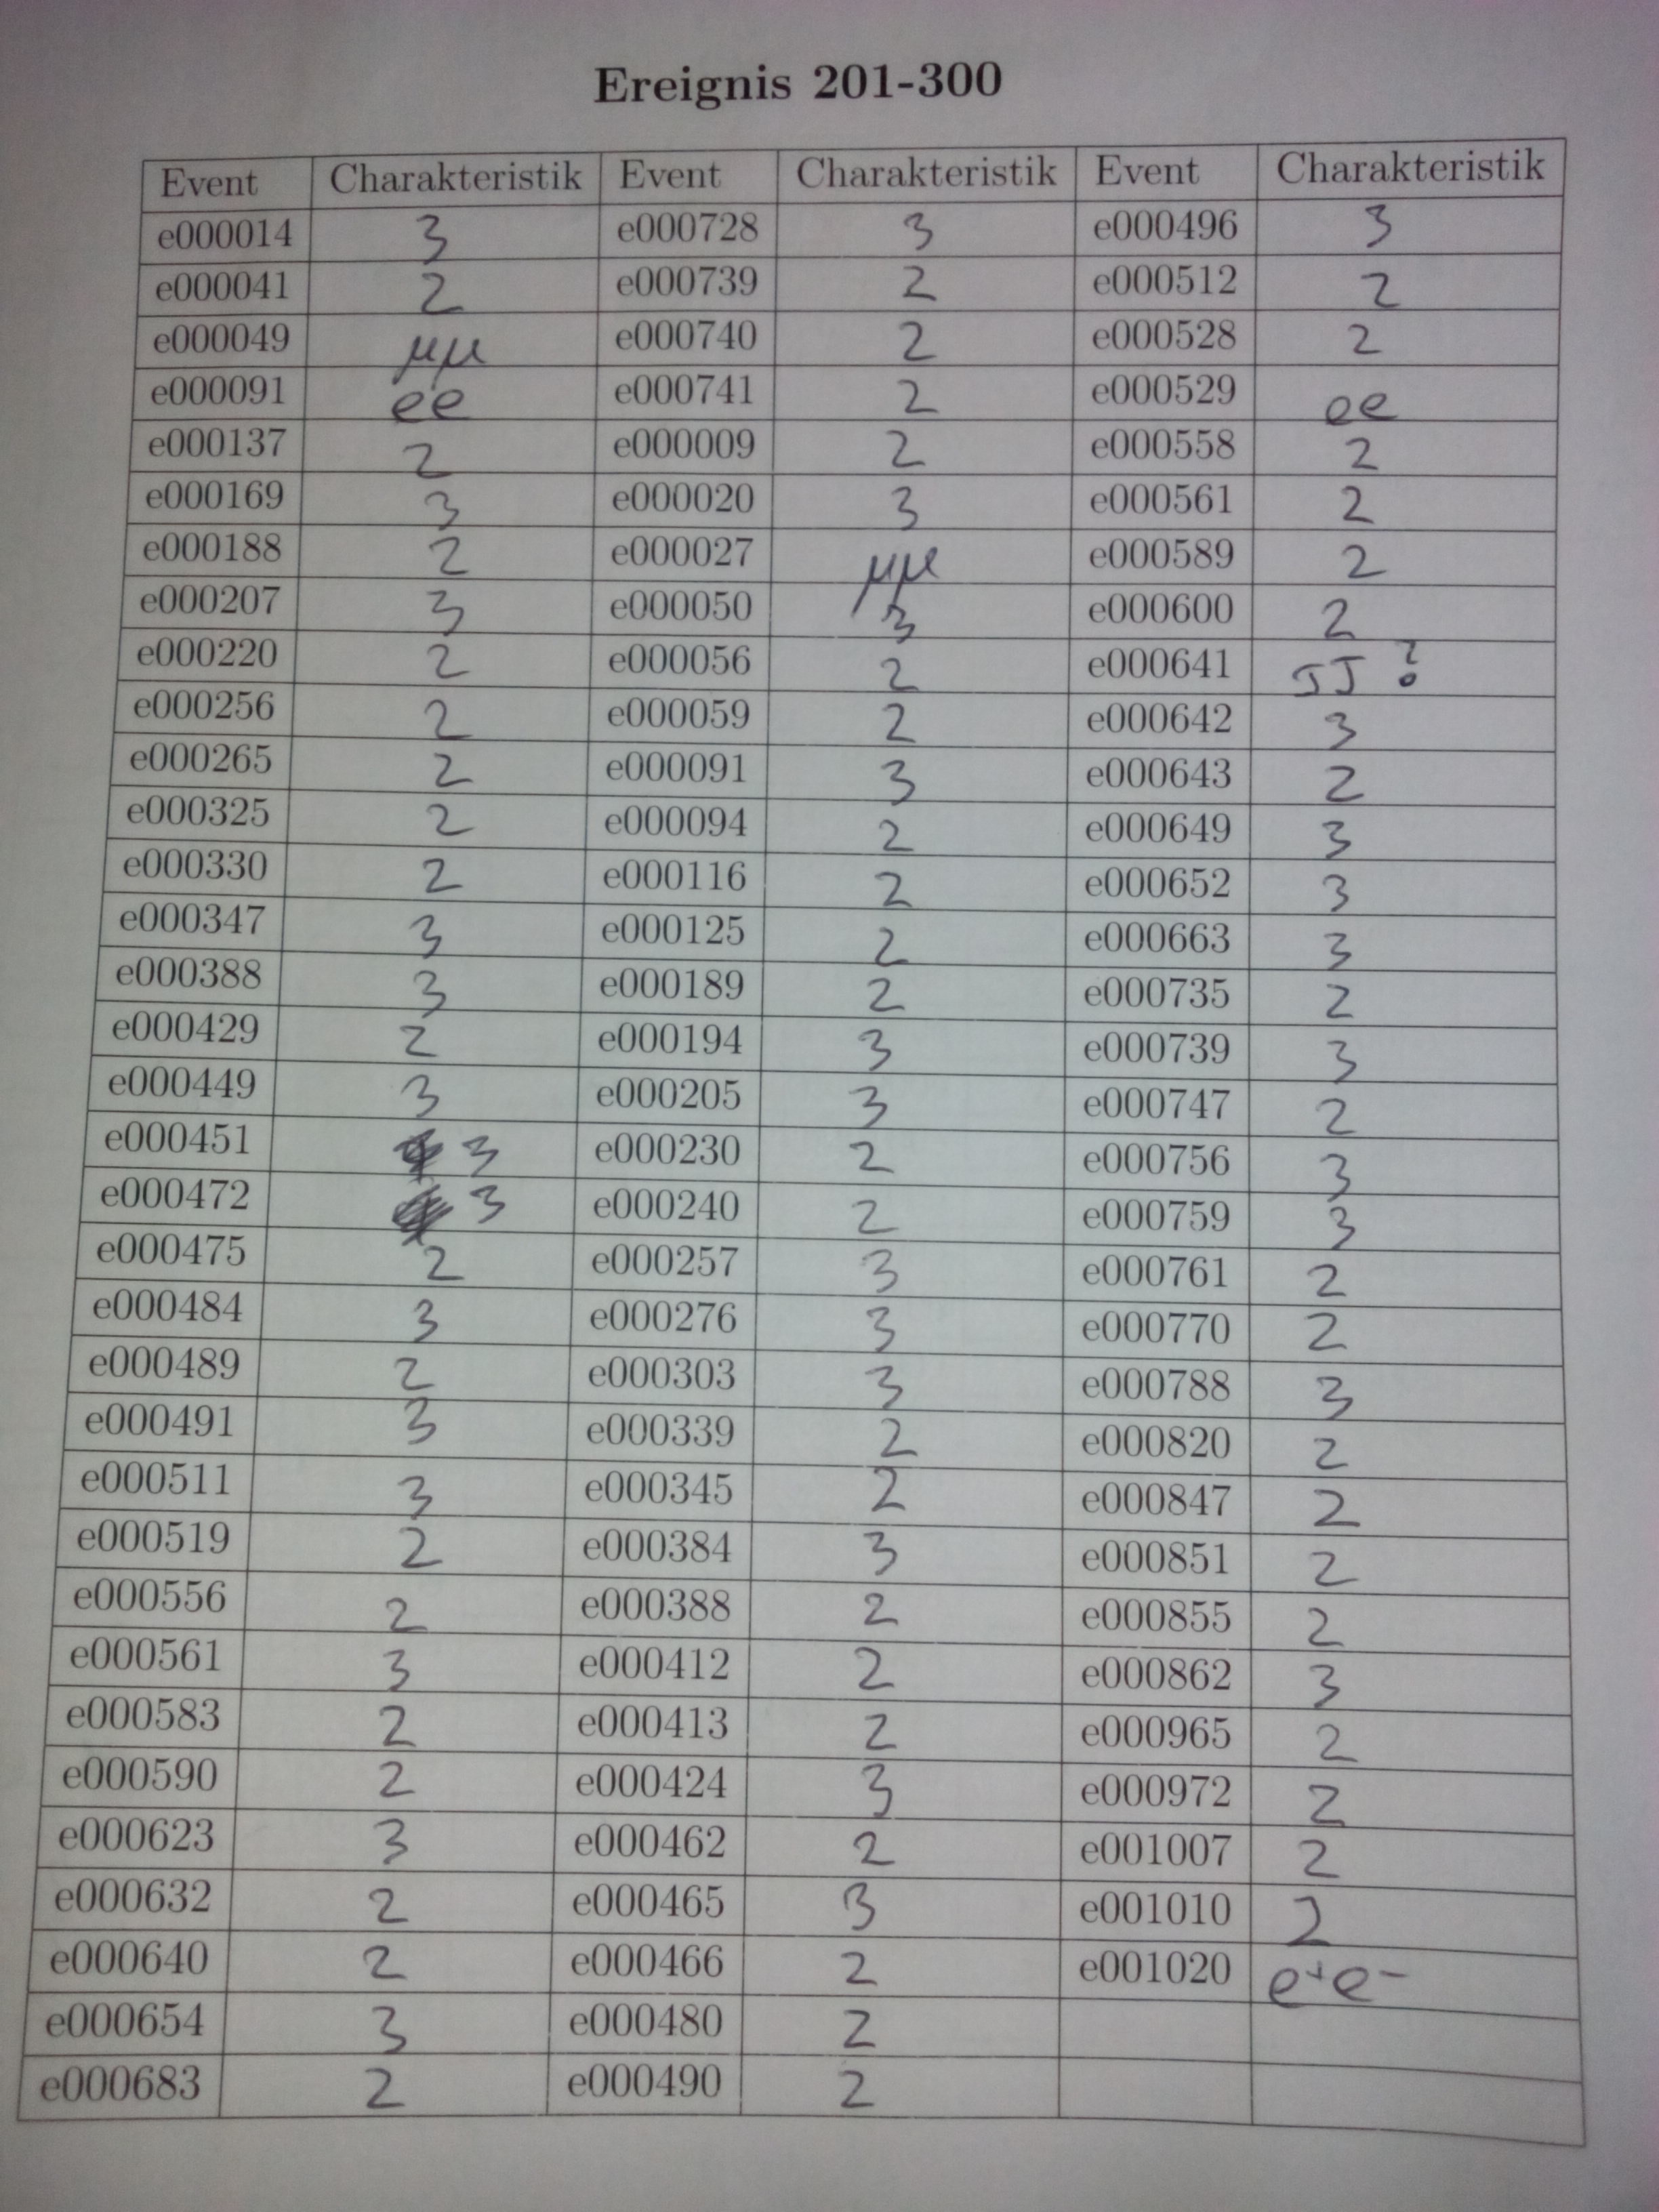 Ereignis 201-300
Event Charakteristik Event Charakteristik Event Charakteristik
e000014 3 e000728 3 e000496 3
e000041 2 e000739 2 e000512 2
e000049 μμ e000740 2 e000528 2
e000091 ee e000741 2 e000529 ee
e000137 2 e000009 2 e000558 2
e000169 3 e000020 3 e000561 2
e000188 2 e000027 μμ e000589 2
e000207 3 e000050 3 e000600 2
e000220 2 e000056 2 e000641 JJ ?
e000256 2 e000059 2 e000642 3
e000265 2 e000091 3 e000643 2
e000325 2 e000094 2 e000649 3
e000330 2 e000116 2 e000652 3
e000347 3 e000125 2 e000663 3
e000388 3 e000189 2 e000735 2
e000429 2 e000194 3 e000739 3
e000449 3 e000205 3 e000747 2
e000451 3 e000230 2 e000756 3
e000472 3 e000240 2 e000759 3
e000475 2 e000257 3 e000761 2
e000484 3 e000276 3 e000770 2
e000489 2 e000303 3 e000788 3
e000491 3 e000339 2 e000820 2
e000511 3 e000345 2 e000847 2
e000519 2 e000384 3 e000851 2
e000556 2 e000388 2 e000855 2
e000561 3 e000412 2 e000862 3
e000583 2 e000413 2 e000965 2
e000590 2 e000424 3 e000972 2
e000623 3 e000462 2 e001007 2
e000632 2 e000465 3 e001010 2
e000640 2 e000466 2 e001020 e+e-
e000654 3 e000480 2
e000683 2 e000490 2